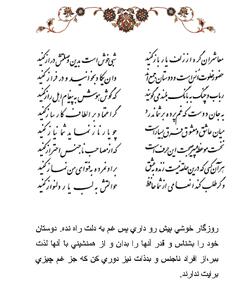 معاشران گره از زلف یار باز کنید شبی خوش است بدین وصلتش دراز کنید
حضور خلوت انس است و دوستان جمعند وان یکاد بخوانید و در فراز کنید
رباب و چنگ به بانگ بلند می‌گویند که گوش هوش به پیغام اهل راز کنید
به جان دوست که غم پرده بر شما ندرد گر اعتماد بر الطاف کارساز کنید
میان عاشق و معشوق فرق بسیار است چو یار ناز نماید شما نیاز کنید
نخست موعظه پیر صحبت این حرف است که از مصاحب ناجنس احتراز کنید
هر آن کسی که درین حلقه نیست زنده به عشق بر او نمرده به فتوای من نماز کنید
وگر طلب کند انعامی از شما حافظ حوالتش به لب یار دلنواز کنید
روزگار خوشي پيش رو داري پس غم به دلت راه نده. دوستان
خود را بشناس و قدر آنها را بدان و از همنشيني با آنها لذت
ببر.از افراد ناجنس و بدذات نيز دوري كن كه جز غم چيزي
برايت ندارند.